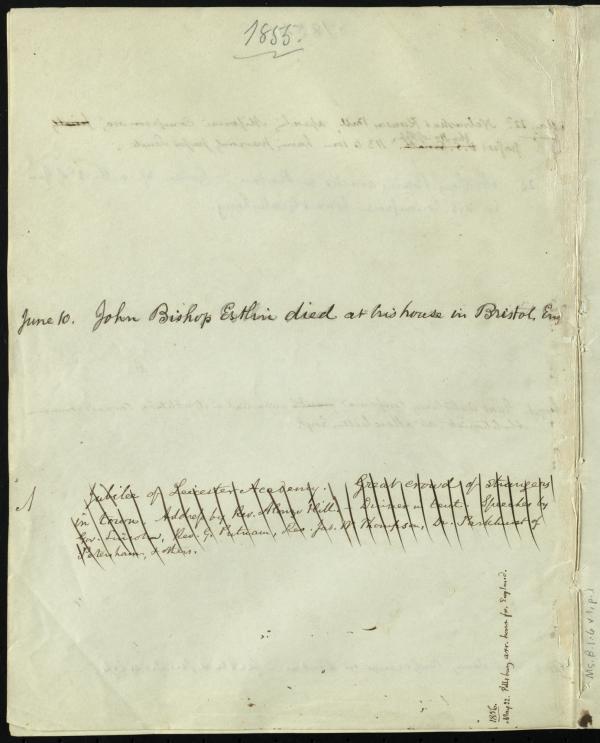 1855.
June 10. John Bishop Estlin died at his house in Bristol, Eng
Jubilee of Leicester Academy. Great crowd of strangers
in town. Address by Rev. Alonzo Hill. - Dinner in tent. Speeches by
Gov. Lincoln, Rev. G. Putnam, Rev. Jas. W. Thompson, Dr. Parkhurst of
Petersham, & others.
1856.
May 22. Pillsbury arr. home fr. England.
Ms. B.1.6 v.1, p.1